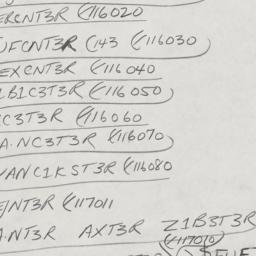 ERCNT3R (116020
JFCNT3R (143 (116030)
EXCNT3R (116040
LB1C3T3R (116050)
CC3T3R (116060
A.NC3T3R (116070)
VANC1KST3R (116080
EJNT3R (117011
A.NT3R AXT3R Z1B3T3R
(117010)